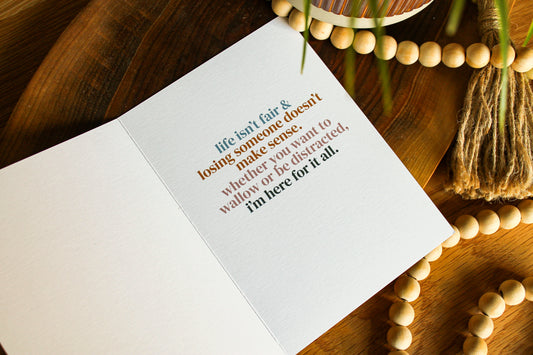 life isn't fair &
losing someone doesn't
make sense.
whether you want to
wallow or be distracted,
i'm here for it all.